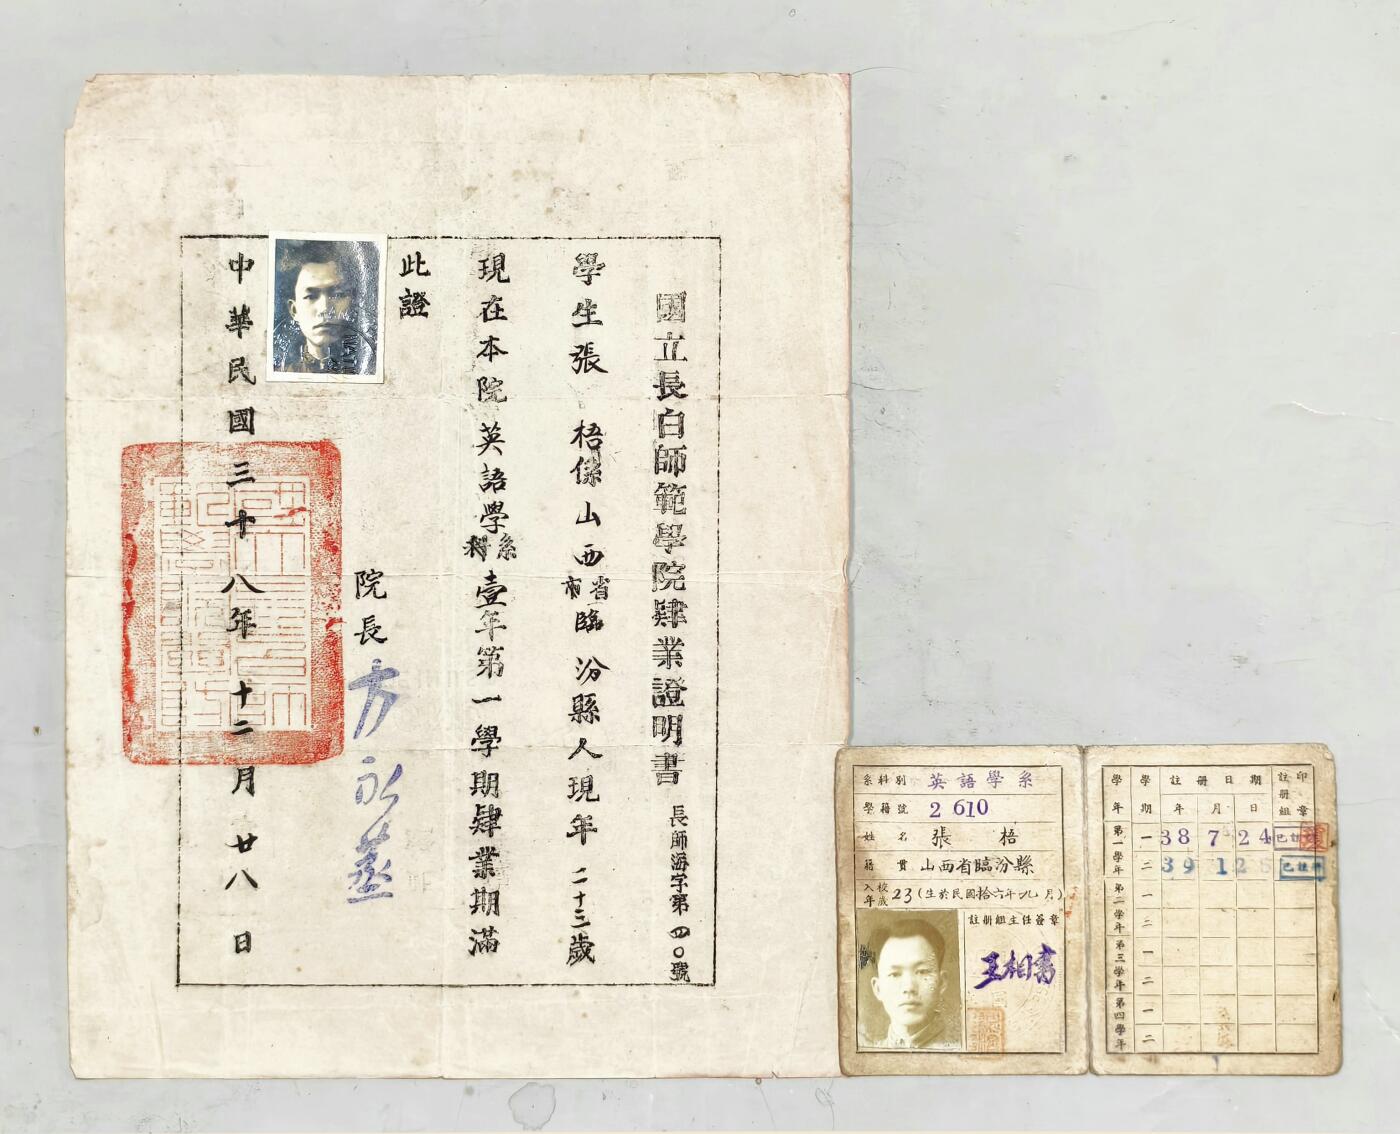 國立長白師範學院肄業證明書
長師海字第四〇號
學生張 梧係山西省市臨汾縣人現年二十三歲
現在本院英語學系科壹年第一學期肄業期滿
此證
院長方永蒸
中華民國三十八年十二月廿八日
系科別 英語學系
學籍號 2610
姓名 張梧
籍貫 山西省臨汾縣
入校年歲 23(生於民國拾六年九月)
註册組主任簽章
王相書
學年 學期 註册日期 註册組印章
年 月 日
第一學年 一 38 7 24 已註册
二 39 1 2 已註册
第二學年 一
二
第三學年 一
二
第四學年 一
二